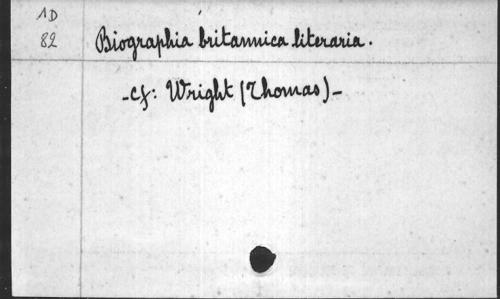 1D
82
Biographia britannica literaria.
-cf: Wright (Thomas)-